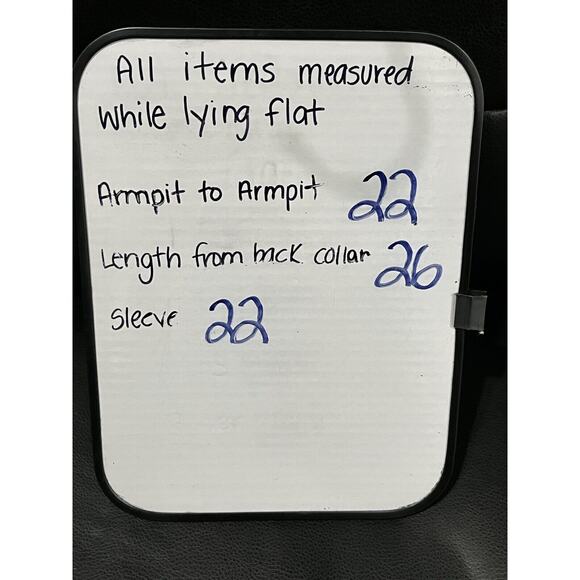 All items measured
while lying flat
Armpit to Armpit 22
Length from back collar 26
Sleeve 22